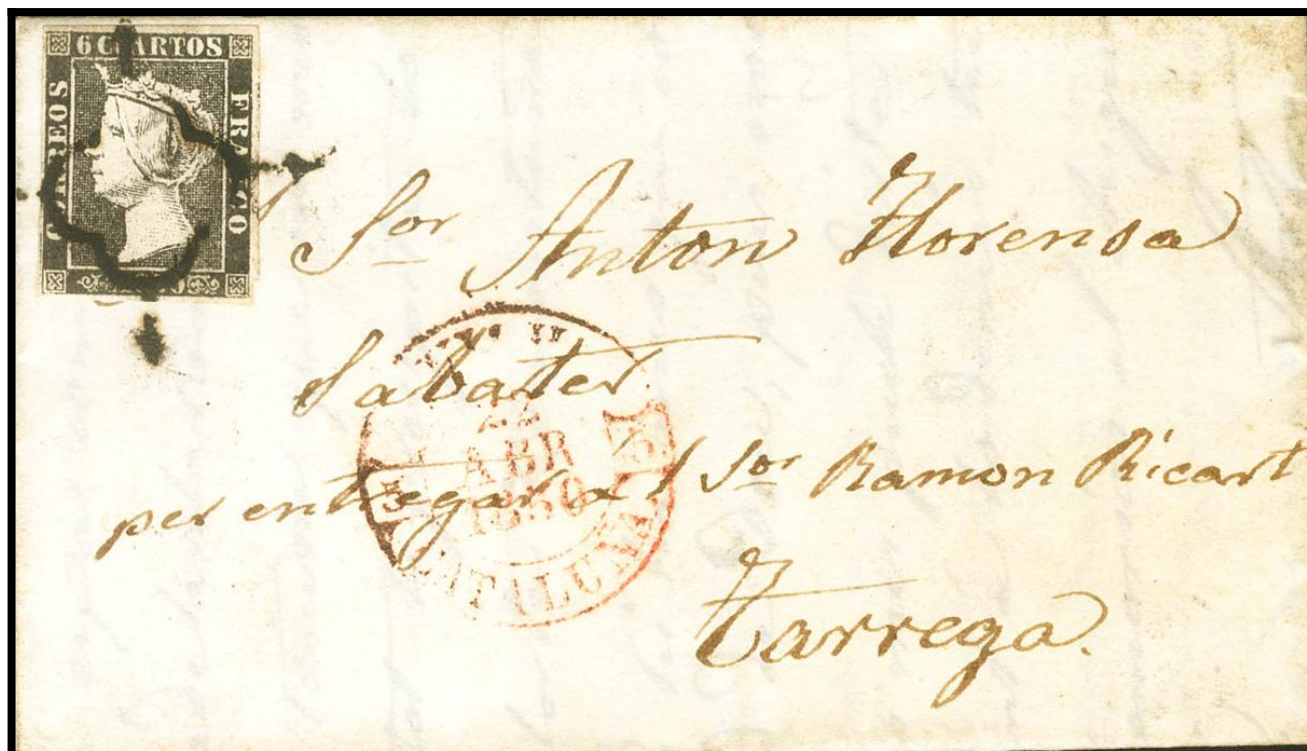 6 CUARTOS
CORREOS
FRANCO
Sor Anton Florensa
Sabater
22
ABR
1850
CATALUÑA
per entregar a l Sor Ramon Ricart
Tarrega.